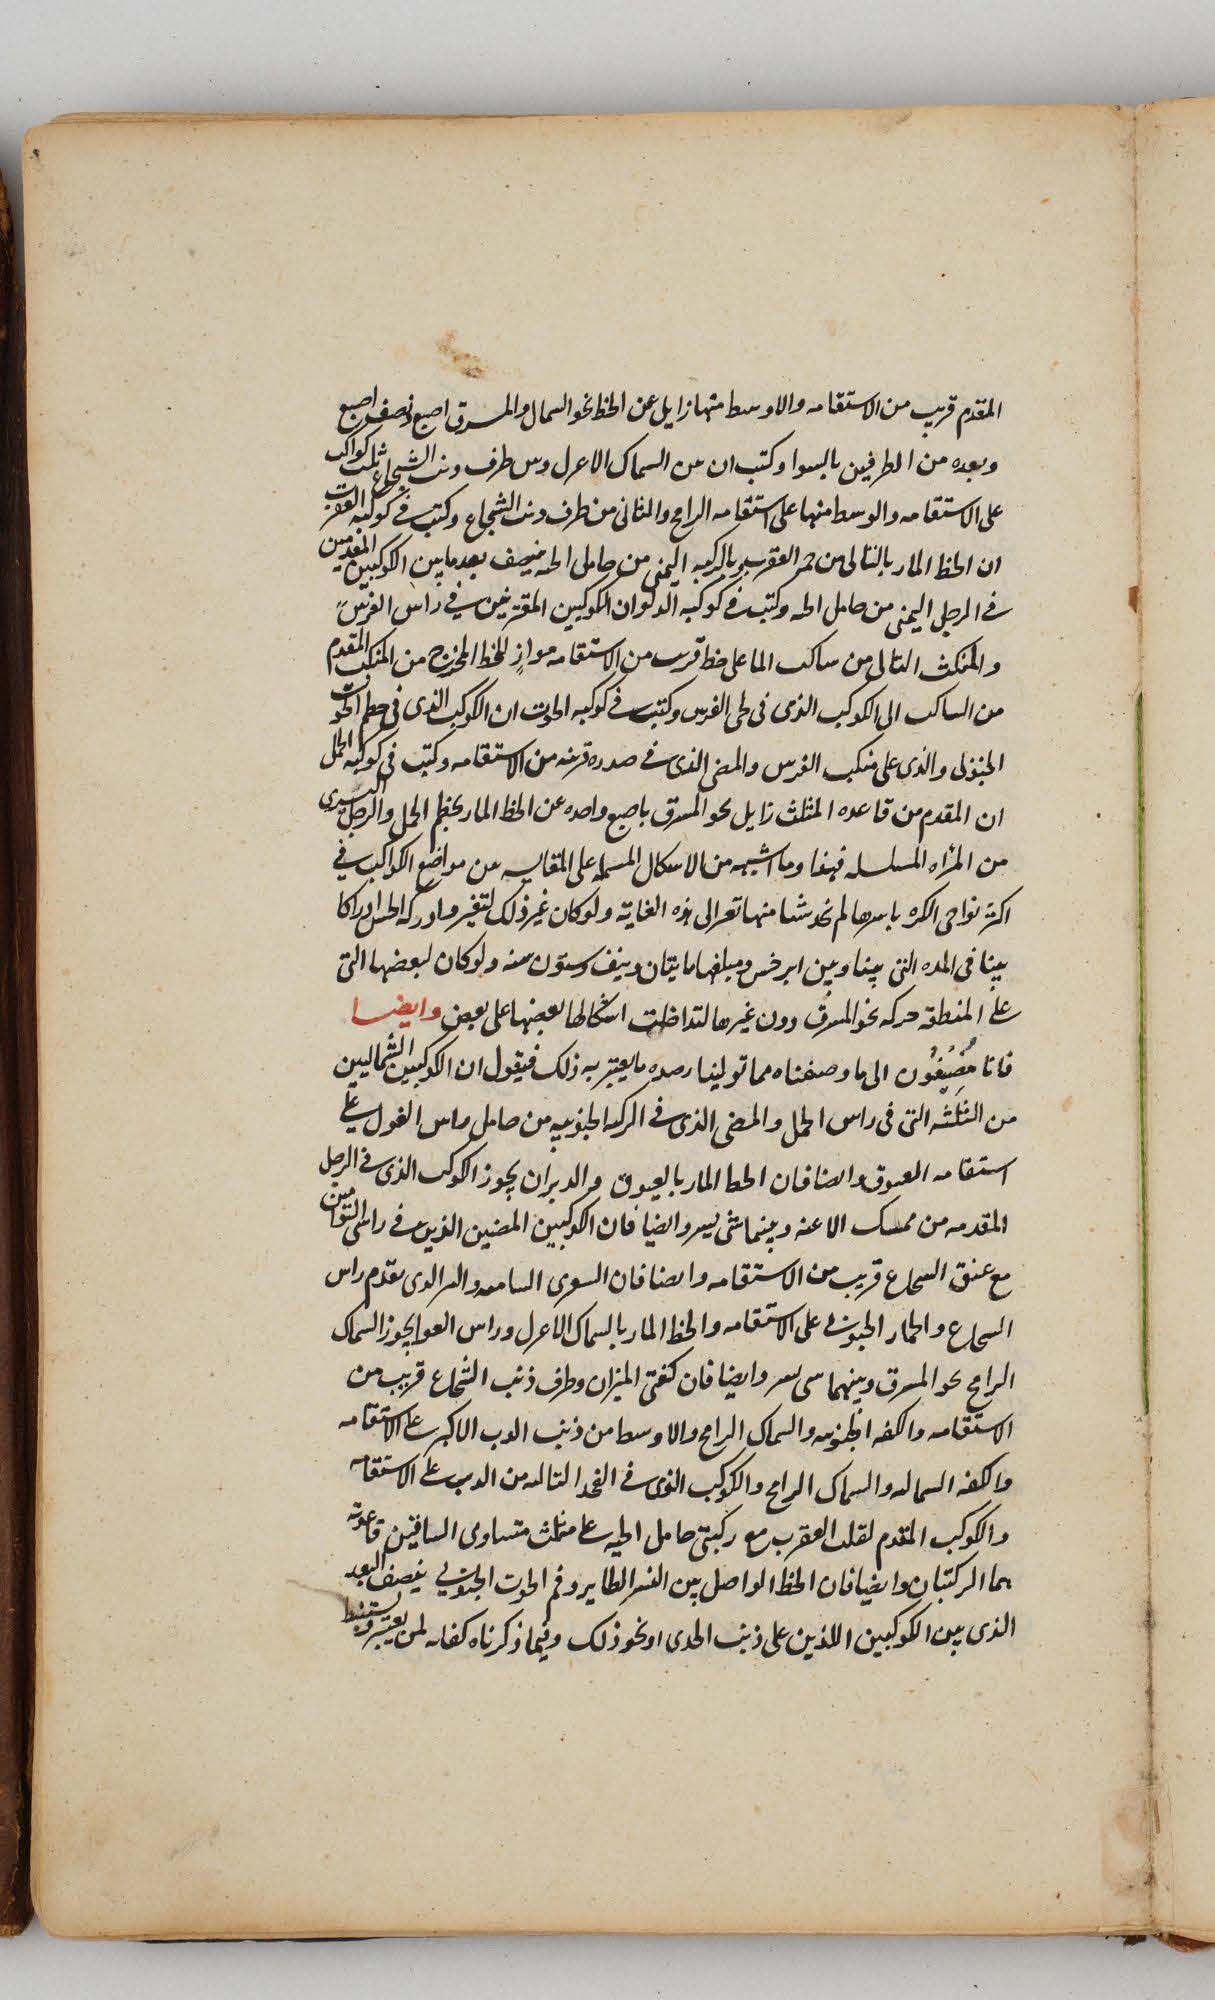 المقدم قريب من الاستقامه والاوسط منها زايل عن الخط نحو السمال والمسرق اصبع ونصف اصبع
وبعده من الطرفين بالسوا وكتب ان من السماك الاعزل وس طرف دنب الشجاع ثلث كواكب
على الاستقامه والوسط منها على استقامه الرامح والثانى من طرف دنب الشجاع وكتب فى كوكبه العقرب
ان الخط المار بالتالى من العقرب وبالركبه اليمنى من حامل الحه ينصف بعد مابين الكوكبين المقدمين
فى الرجل اليمنى من حامل الحه وكتب فى كوكبه الدلو ان الكوكبين المقترنين فى راس الفرس
والمنكب التالى من ساكب الما على خط قرب من الاستقامه مواز للخط المخرج من المنكب المقدم
من الساكب الى الكوكب الذى فى لحى الفرس وكتب فى كوكبه الحوت ان الكوكب الذى فى خطم الحوت
الجنوبى والذى على منكب الفرس والمضى الذى فى صدره قريبه من الاستقامه وكتب فى كوكبه الحمل
ان المقدم من قاعده المثلث زايل نحو المسرق باصبع واحده عن الخط المار بخطم الحمل والرجل اليسرى
من المراه المسلسله فهذا وما اشبهه من الاسكال المسمله على المقايسه من مواضع الكواكب فى
اكثر نواحى الكره باسرها لم نجد شيا منها تغير الى هذه الغايه ولو كان غير ذلك لتغير وادركه الحس ادراكا
بينا فى المده التى بيننا وبين ابرخس ومبلغها مايتان ونيف وستون سنه ولو كان لبعضها التى
على المنطقه حركه نحو المسرق دون غيرها لتداخلت اشكالها بعضها على بعض وايضا
فانا مضيفون الى ما وصفناه مما تولينا رصده ما يعتبر به ذلك فيقول ان الكوكبين الشماليين
من الثلثه التى فى راس الحمل والمضى الذى فى الركبه الجنوبيه من حامل راس الغول على
استقامه العيوق وايضا فان الخط المار بالعيوق والدبران يجوز الكوكب الذى فى الرجل
المقدمه من ممسك الاعنه وبينهما شى يسير وايضا فان الكوكبين المضيين الذين فى راسى التوامين
مع عنق السجاع قريب من الاستقامه وايضا فان السعرى السامه والبر الدى يقدم راس
السجاع والحمار الجنوبى على الاستقامه والخط المار بالسماك الاعزل وراس العوا يجوز السماك
الرامح نحو المسرق وبينهما سى يسير وايضا فان كفتى الميزان وطرف ذنب الشجاع قريب من
الاستقامه والكفه الجنوبيه والسماك الرامح والاوسط من ذنب الدب الاكبر على الاستقامه
والكفه السماليه والسماك الرامح والكوكب الذى فى الفخد التاليه من الدب على الاستقامه
والكوكب المقدم لقلب العقرب مع ركبتى حامل الحيه على مثلث متساوى الساقين قاعدته
هما الركبتان وايضا فان الخط الواصل بين النسر الطاير وفم الحوت الجنوبى ينصف البعد
الذى بين الكوكبين اللذين على ذنب الجدى ونحو ذلك وفيما ذكرناه كفايه لمن يعتبر ويستنبط